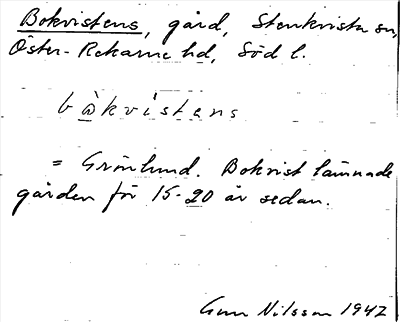 Bokvistens, gård, Stenkvista sn,
Öster-Rekarne hd, Söd l.
bòkvistens
= Grönlund. Bokvist lämnade
gården för 15-20 år sedan.
Gun Nilsson 1942